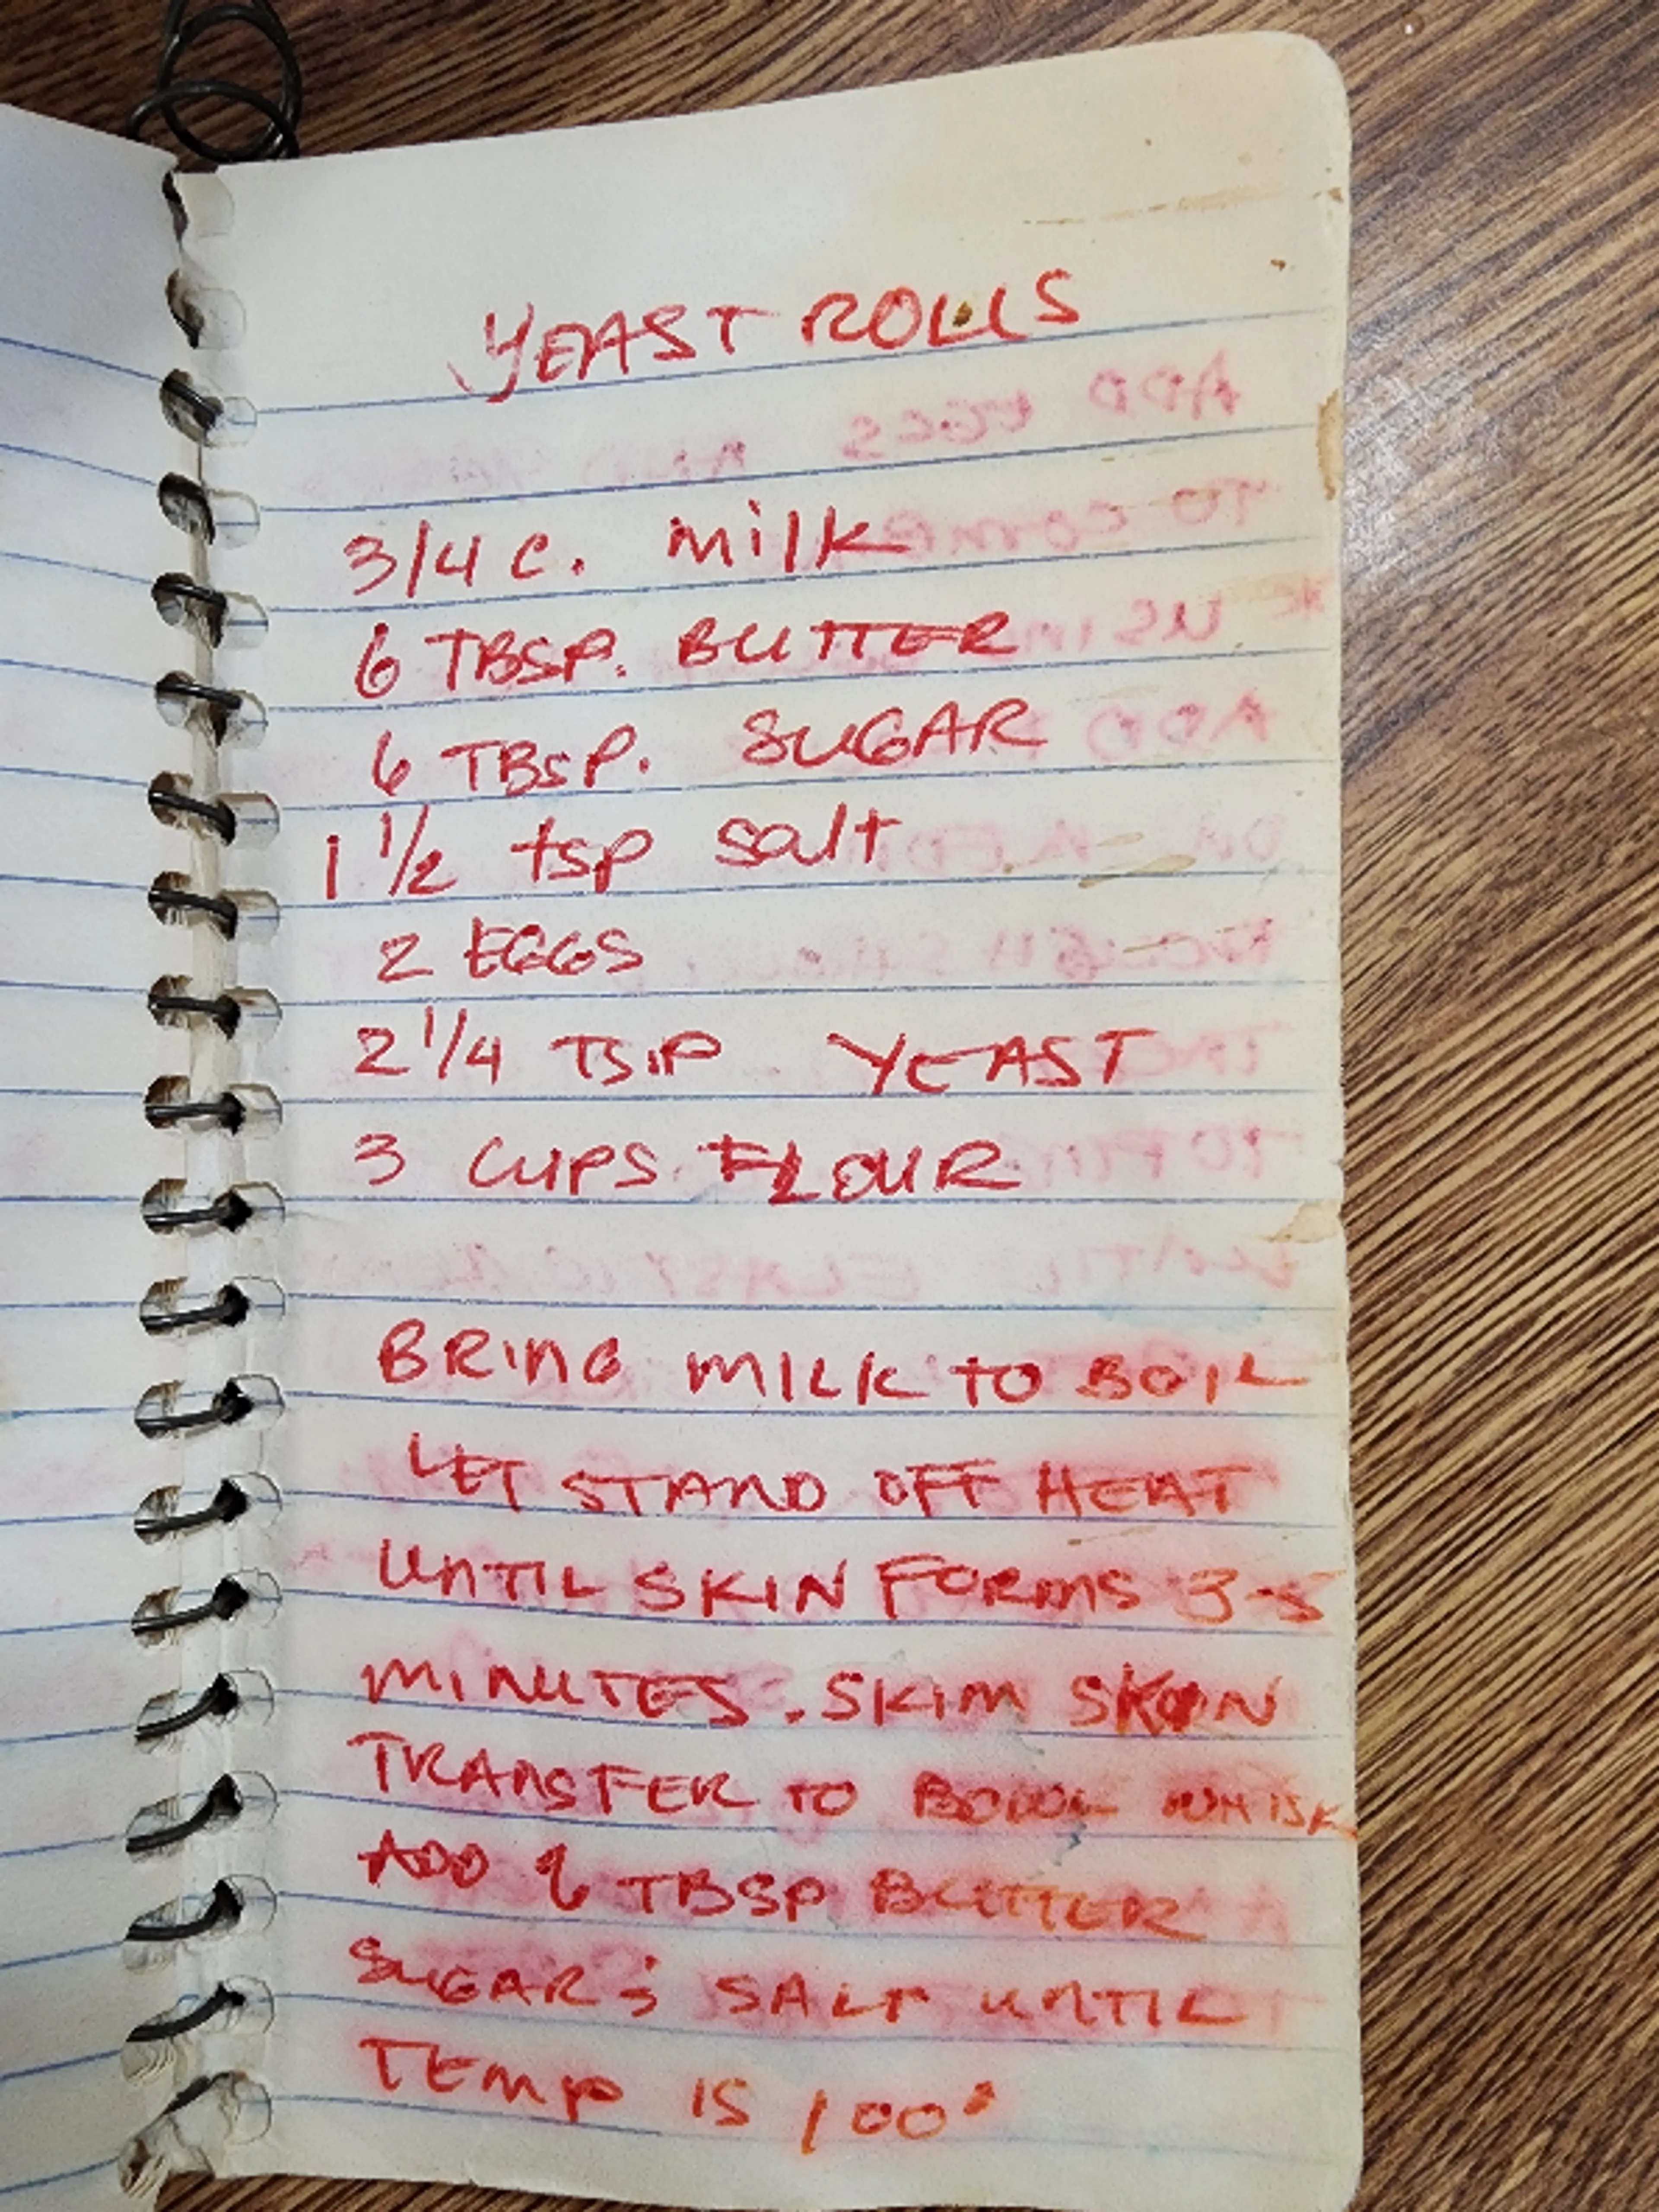 YEAST ROLLS
3/4 C. milk
6 TBSP. BUTTER
6 TBSP. SUGAR
1 1/2 tsp salt
2 EGGS
2 1/4 TSP YEAST
3 CUPS FLOUR
BRING MILK TO BOIL
LET STAND OFF HEAT
UNTIL SKIN FORMS 3-5
MINUTES. SKIM SKIN
TRANSFER TO BOWL WHISK
ADD 6 TBSP BUTTER
SUGAR & SALT UNTIL
TEMP IS 100°